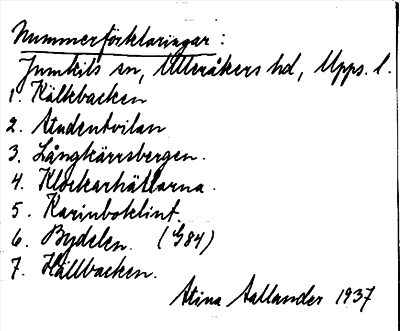 Nummerförklaringar:
Jumkils sn, Ulleråkers hd, Upps. l.
1. Kälkbacken
2. Studentvilan
3. Långkärrsbergen.
4. Klockarhällarna.
5. Karinboklint.
6. Bydelen. (984)
7. Hällbacken.
Stina Sallander 1937